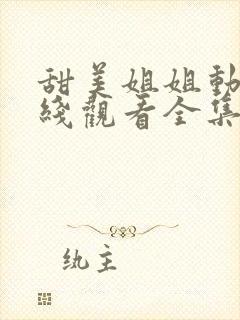 甜美姐姐動
綫觀看全集
纨主